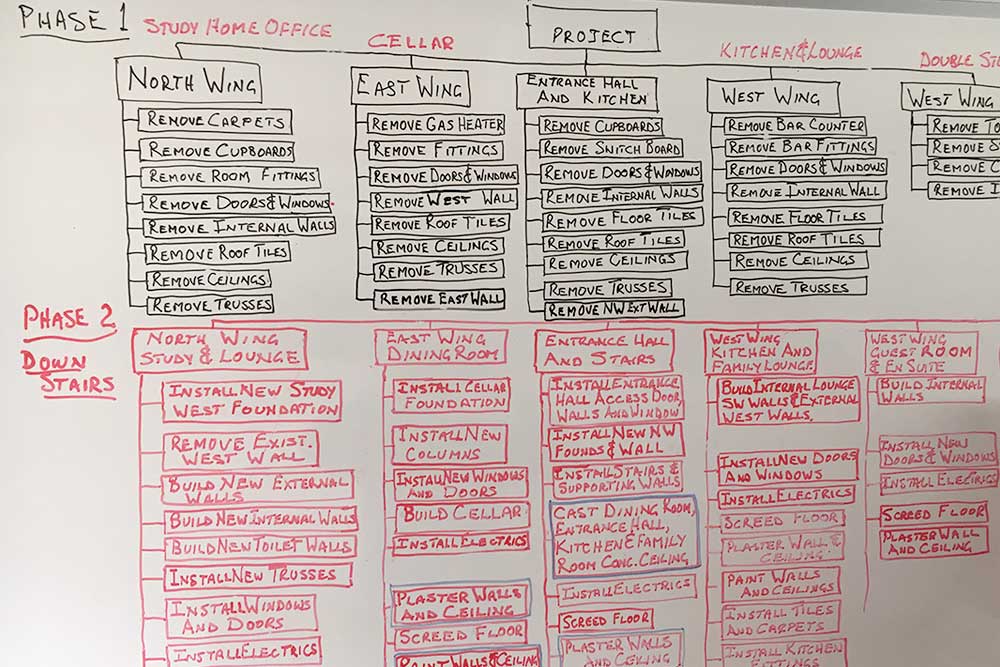 PHASE 1
STUDY HOME OFFICE
CELLAR
PROJECT
KITCHEN & LOUNGE
DOUBLE ST
NORTH WING
REMOVE CARPETS
REMOVE CUPBOARDS
REMOVE ROOM FITTINGS
REMOVE DOORS & WINDOWS
REMOVE INTERNAL WALLS
REMOVE ROOF TILES
REMOVE CEILINGS
REMOVE TRUSSES
EAST WING
REMOVE GAS HEATER
REMOVE FITTINGS
REMOVE DOORS & WINDOWS
REMOVE WEST WALL
REMOVE ROOF TILES
REMOVE CEILINGS
REMOVE TRUSSES
REMOVE EAST WALL
ENTRANCE HALL
AND KITCHEN
REMOVE CUPBOARDS
REMOVE SNITCH BOARD
REMOVE DOORS & WINDOWS
REMOVE INTERNAL WALLS
REMOVE FLOOR TILES
REMOVE ROOF TILES
REMOVE CEILINGS
REMOVE TRUSSES
REMOVE NW EXT WALL
WEST WING
REMOVE BAR COUNTER
REMOVE BAR FITTINGS
REMOVE DOORS & WINDOWS
REMOVE INTERNAL WALL
REMOVE FLOOR TILES
REMOVE ROOF TILES
REMOVE CEILINGS
REMOVE TRUSSES
WEST WING
REMOVE TO
REMOVE S
REMOVE C
REMOVE I
PHASE 2
DOWN
STAIRS
NORTH WING
STUDY & LOUNGE
INSTALL NEW STUDY
WEST FOUNDATION
REMOVE EXIST.
WEST WALL
BUILD NEW EXTERNAL
WALLS
BUILD NEW INTERNAL WALLS
BUILD NEW TOILET WALLS
INSTALL NEW TRUSSES
INSTALL WINDOWS
AND DOORS
INSTALL ELECTRICS
EAST WING
DINING ROOM
INSTALL CELLAR
FOUNDATION
INSTALL NEW
COLUMNS
INSTALL NEW WINDOWS
AND DOORS
BUILD CELLAR
INSTALL ELECTRICS
PLASTER WALLS
AND CEILING
SCREED FLOOR
PAINT WALLS & CEILING
ENTRANCE HALL
AND STAIRS
INSTALL ENTRANCE
HALL ACCESS DOOR,
WALLS AND WINDOW
INSTALL NEW NW
FOUNDS & WALL
INSTALL STAIRS &
SUPPORTING WALLS
CAST DINING ROOM,
ENTRANCE HALL,
KITCHEN & FAMILY
ROOM CONC. CEILING
INSTALL ELECTRICS
SCREED FLOOR
PLASTER WALLS
AND CEILING
WEST WING
KITCHEN AND
FAMILY LOUNGE
BUILD INTERNAL LOUNGE
SW WALLS & EXTERNAL
WEST WALLS.
INSTALL NEW DOORS
AND WINDOWS
INSTALL ELECTRICS
SCREED FLOOR
PLASTER WALL &
CEILING
PAINT WALLS
AND CEILINGS
INSTALL TILES
AND CARPETS
INSTALL KITCHEN
FITTINGS
WEST WING
GUEST ROOM
& EN SUITE
BUILD INTERNAL
WALLS
INSTALL NEW
DOORS & WINDOWS
INSTALL ELECRICS
SCREED FLOOR
PLASTER WALL
AND CEILING